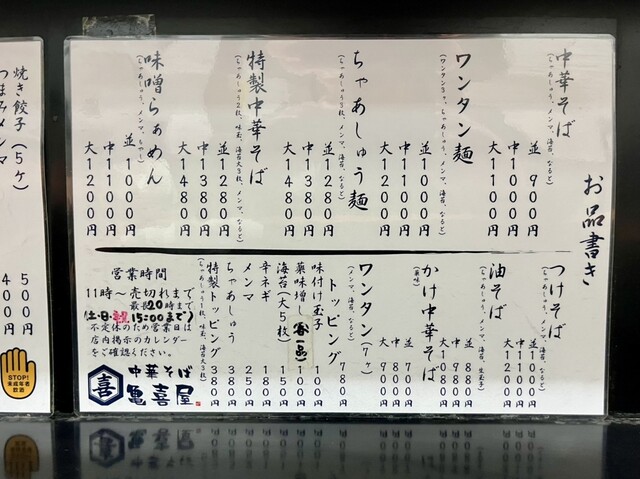 お品書き
中華そば
(ちゃあしゅう、メンマ、海苔、なると)
並 900円
中1000円
大1100円
ワンタン麺
(ワンタン5ヶ、ちゃあしゅう、メンマ、海苔、なると)
並1000円
中1100円
大1200円
ちゃあしゅう麺
(ちゃあしゅう5枚、メンマ、海苔、なると)
並1280円
中1380円
大1480円
特製中華そば
(ちゃあしゅう2枚、味玉、海苔大3枚、メンマ、なると)
並1280円
中1380円
大1480円
味噌らぁめん
(ちゃあしゅう、メンマ、もやし)
並1000円
中1100円
大1200円
つけそば
(ちゃあしゅう、メンマ、海苔、なると)
並1000円
中1100円
大1200円
油そば
(ちゃあしゅう、メンマ、海苔、生玉子)
並 880円
中 980円
大1080円
かけ中華そば
並 700円
中 800円
大 900円
ワンタン(7ヶ)
(メンマ、海苔、なると)
780円
トッピング
味付け玉子 100円
薬味増し
海苔(大5枚) 150円
辛ネギ 180円
メンマ 250円
ちゃあしゅう 380円
特製トッピング 380円
(ちゃあしゅう1枚、味玉、海苔大3枚)
営業時間
11時～売切れまで
最長20時まで
(土・日・祝 15:00まで)
不定休のため営業日は
店内掲示のカレンダー
をご確認ください。
喜
中華そば
亀喜屋
焼き餃子(5ヶ)
500円
つまみメンマ
400円
STOP!
未成年者
飲酒